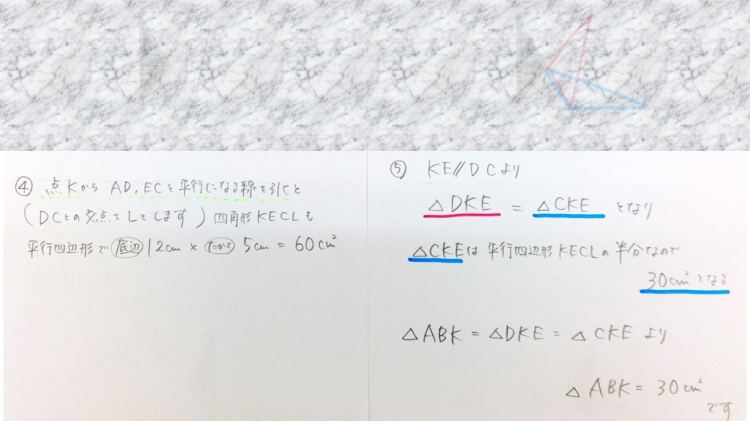 ④ 点KからAD,ECと平行になる線を引くと
(DCとの交点をLとします)四角形KECLも
平行四辺形で 底辺 12cm × たかさ 5cm = 60cm²
⑤ KE//DCより
△DKE = △CKE となり
△CKEは平行四辺形KECLの半分なので
30cm²となる
△ABK = △DKE = △CKE より
△ABK = 30cm²
です